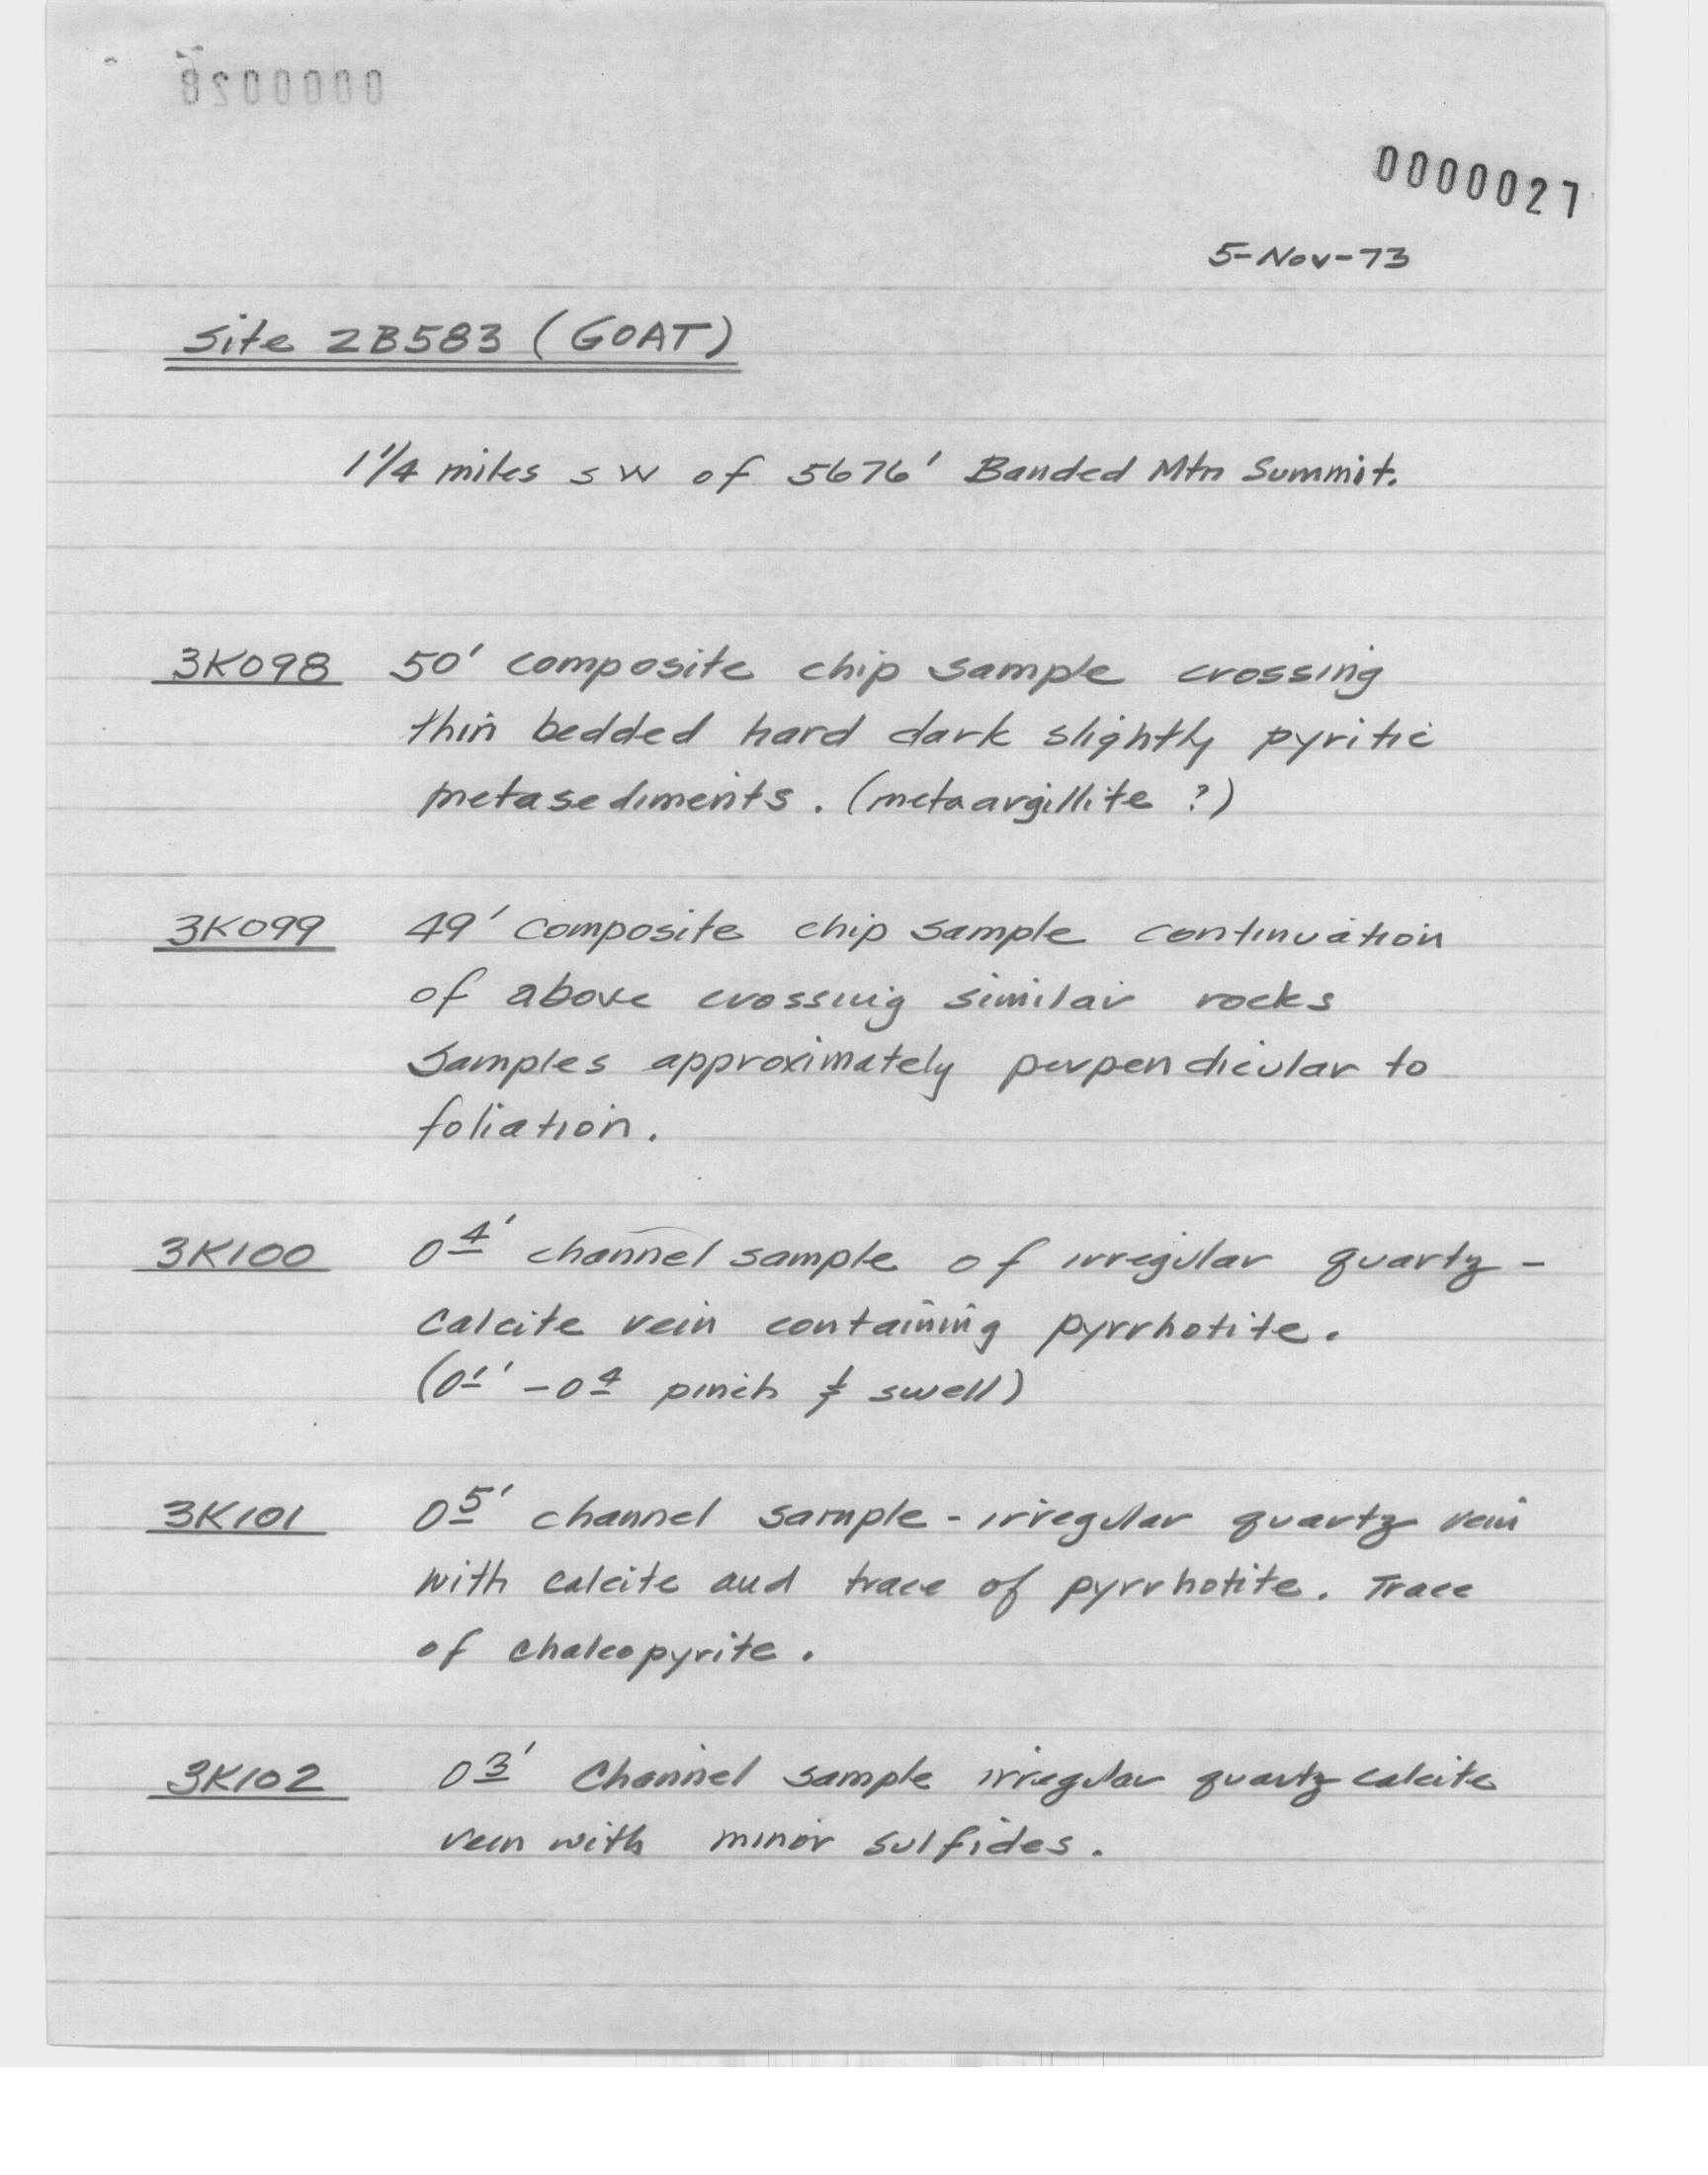 0000028
0000027
5-Nov-73
Site 2B583 (GOAT)
1 1/4 miles SW of 5676' Banded Mtn Summit.
3K098 50' composite chip sample crossing
thin bedded hard dark slightly pyritic
metasediments. (metaargillite ?)
3K099 49' composite chip sample continuation
of above crossing similar rocks
Samples approximately perpendicular to
foliation.
3K100 0⁴' channel sample of irregular quartz-
calcite vein containing pyrrhotite.
(0¹' - 0⁴ pinch & swell)
3K101 0⁵' channel sample - irregular quartz vein
with calcite and trace of pyrrhotite. Trace
of chalcopyrite.
3K102 0³' Channel sample irregular quartz-calcite
vein with minor sulfides.